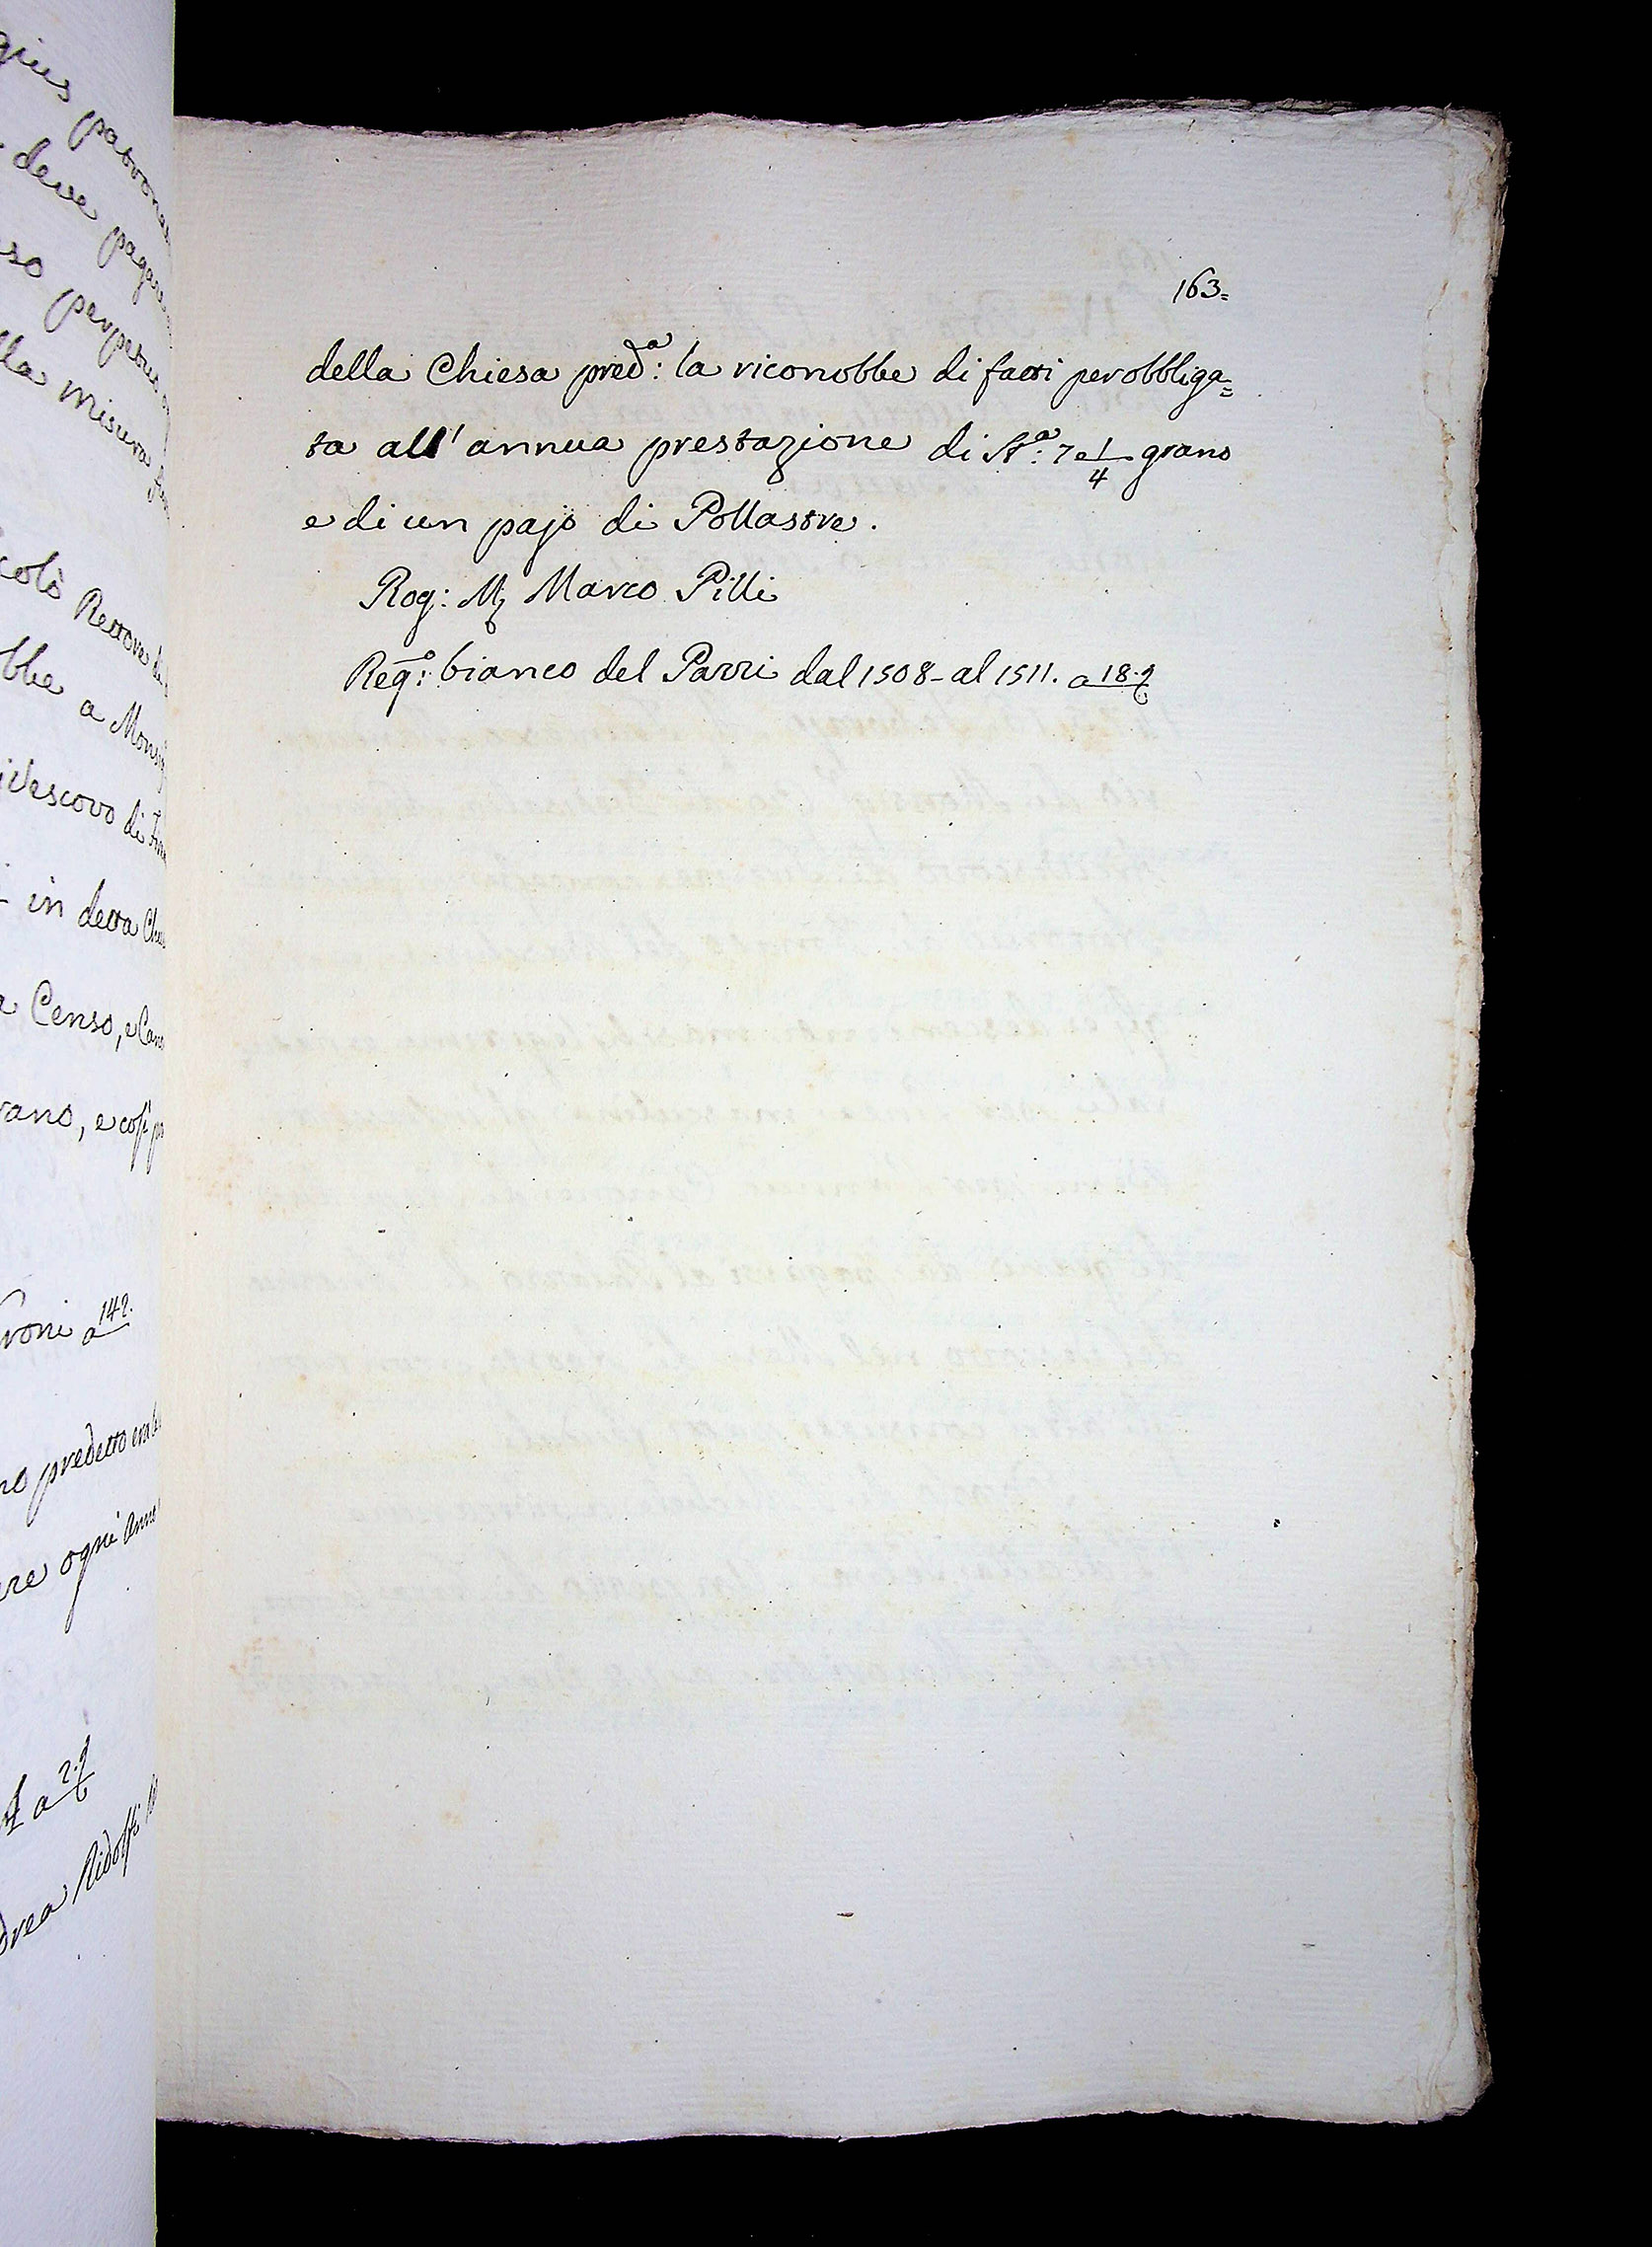 gius patrona
deve pagare
so perpetuo
lla misura
colò Rettore de
bbe a Monsig
ivescovo di
in detta Chie
a Censo, e Can
rano, e così
roni a 142.
no predetto era
ere ogni Anno
a 2.
drea Ridolfi
163=
della Chiesa pred:ª la riconobbe di fatti per obbliga=
ta all'annua prestazione di St:ª 7 e 1/4 grano
e di un pajo di Pollastre.
Rog: Mz Marco Pilli
Reg:º bianco del Parri dal 1508- al 1511. a 18.